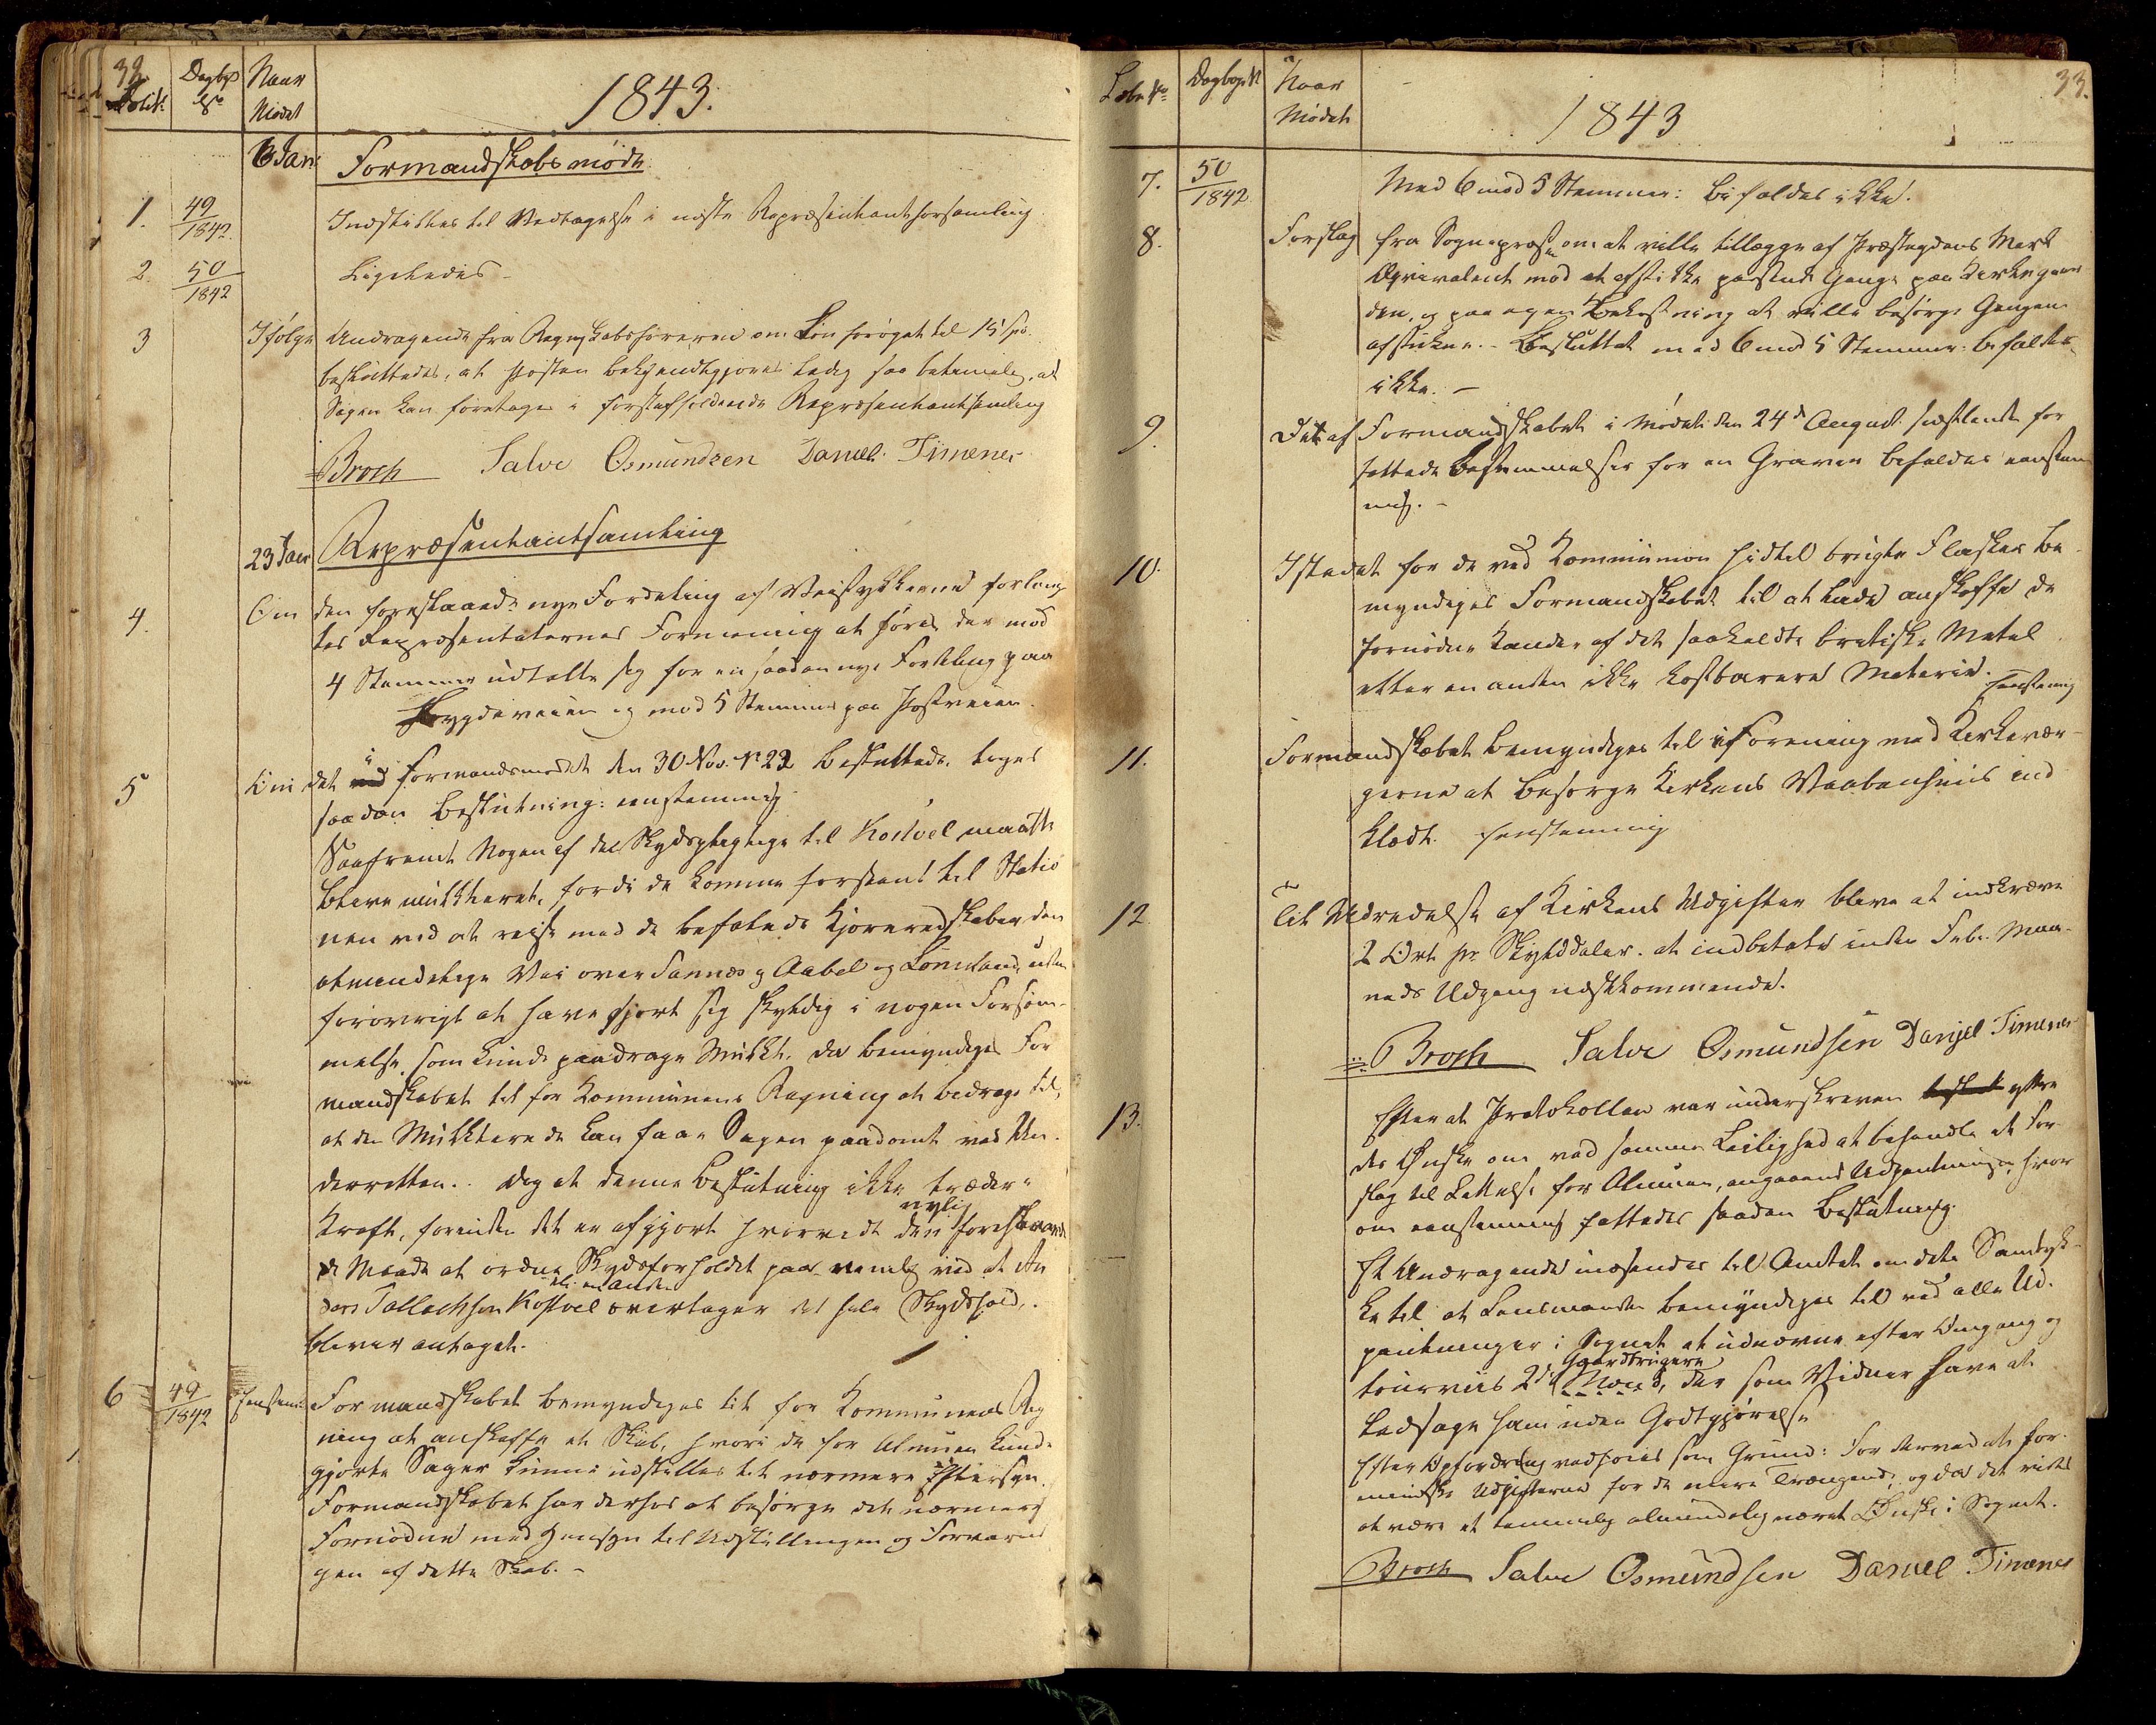 32.
Løbe No.
Dagbgs No
Naar Mødet
1843.
6 Jan:
Formandskabsmøde
1. 49/1842. Indstilles til Vedtagelse i næste Repræsentantforsamling
2. 50/1842 Ligeledes
3 Ifølge Andragende fra Regnskabsføreren om Løn forøget til 15 spd.
besluttedes, at Posten bekjendtgjøres ledig saa betimelig, at
Sagen kan foretages i førstafholdende Repræsentantsamling
Broch Salve Osmundsen Daniel Timenes
23 Jan Repræsentantsamling
4. Om den foreslaaede nye Fordeling af Veistykkerne forlang
tes Repræsentaternes Formening at høre, der mod
4 Stemmer udtalte sig for en saadan nye Fordeling paa
Bygdeveien og mod 5 Stemmer paa Postveien.
5 Om det i Formandsmødet den 30 Nov. No 22 besluttede, toges
saadan Beslutning: eenstemmig
Saafremt Nogen af de Skydspligtige til Kostøl maatte
blive mulkteret, fordi de komme forseent til Statio
nen ved at reise med de befalede Kjøreredskaber den
almindelige Vei over Sannæs og Aabel og Lømsland, uden
forøvrigt at have gjort sig skyldig i nogen Forsøm-
melse, som kunde paadrage Mulkt, da bemyndiges For
mandskabet til for Kommunens Regning at bidrage til,
at den Mulkterede kan faae Sagen paadømt ved Un-
derretten. Dog at denne Beslutning ikke træder i
Kraft, førinden det er afgjort hvorvidt den nylig foreslaaede
Maade at ordne Skydsforholdet paa nemlig ved at An
ders Tallachsen Kostøl ell. en Anden overtager det hele Skydshold,
bliver antaget.
6 49/1842 Eenstem: Formandskabet bemyndiges til for Kommunens Reg
ning at anskaffe et Skab, hvori de for Almuen kund-
gjorte Sager kunne udstilles til nærmere Eftersyn.
Formandskabet har derhos at besørge det nærmere
Fornødne med Hensyn til Udstillingen og Forvarin
gen af dette Skab. -
33.
Løbe No
Dagbogs N
Naar Mødet
1843
7. 50/1842 Med 6 mod 5 Stemmer: bifaldes ikke.
8. Forslag fra Sognepræsten om at ville tillægge af Præstegdens Mark
Æqvivalent mod at afstikke passende Gange paa Kirkegaar
den, og paa egen Bekostning at ville besørge Gangene
afstukne. - Besluttet med 6 mod 5 Stemmer: bifaldes
ikke. -
9. Det af Formandskabet i Mødet den 24de August sidstleden for
fattede Bestemmelser for en Graver bifaldes eenstem
mig. -
10. Istedet for de ved Kommunion hidtil brugte Flasker be-
myndiges Formandskabet til at lade anskaffe de
fornødne Kander af det saakaldte britiske Metal
eller en anden ikke kostbarere Materie. Eenstemmig
11. Formandskabet bemyndiges til i Forening med Kirkevær-
gerne at besørge Kirkens Vaabenhuus ind
klædt. Eenstemmig
12. Til Udredelse af Kirkens Udgifter blive at indkræve
2 Ort pr Skylddaler. at indbetale inden Febr. Maa-
neds Udgang næstkommende.
Broch Salve Osmundsen Daniel Timenes
13. Efter at Protokollen var underskreven yttre
des Ønske om ved samme Leilighed at behandle et For-
slag til Lettelse for Almuen, angaaende Udpantninger, hvor
om eenstemmig fattedes saadan Beslutning.
Et Andragende indsendes til Amtet om dets Samtyk-
ke til at Lensmanden bemyndiges til ved alle Ud-
pantninger i Sognet at udnævne efter Omgang og
tourviis 2de Gaardbrugere Mænd, der som Vidner have at
ledsage ham uden Godtgjørelse
Efter Opfordring vedføies som Grund: For derved at for-
mindske Udgifterne for de mere Trængende, og da det vides
at være et temmelig almindelig næret Ønske i Sognet.
Broch Salve Osmundsen Daniel Timenes